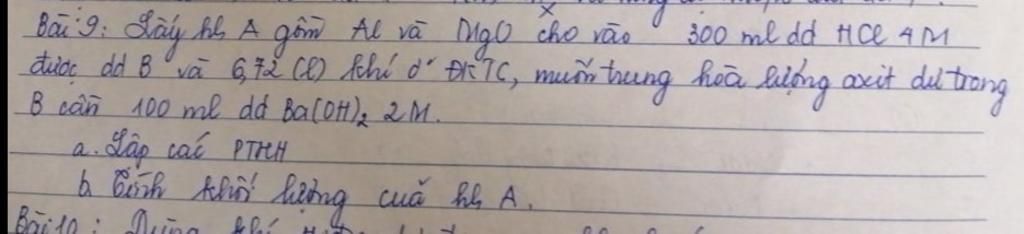 Bài 9: Lấy hh A gồm Al và MgO cho vào 300 ml dd HCl 4M
được dd B và 6,72 (l) khí ở ĐKTC, muốn trung hoà lượng axit dư trong
B cần 100 ml dd Ba(OH)₂ 2M.
a. Lập các PTHH
b. Tính khối lượng của hh A.
Bài 10: Dùng khí